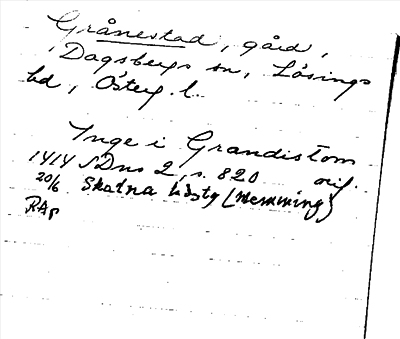 Grånestad, gård,
Dagsbergs sn, Lösings
hd, Österg. l.
Inge i Grandistom
1414 SDns 2, s. 820 orig.
20/6 Skatna hdstg (Memming)
RAp